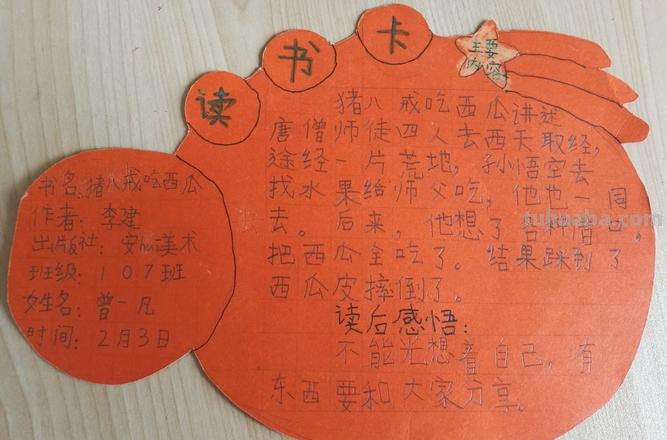 读书卡
主要
内容
猪八戒吃西瓜讲述
唐僧师徒四人去西天取经,
途经一片荒地,孙悟空去
找水果给师父吃,他也一同
去。后来,他想了各种借口,
把西瓜全吃了。结果踩到了
西瓜皮摔倒了。
读后感悟:
不能光想着自己,有
东西要和大家分享。
书名:猪八戒吃西瓜
作者:李建
出版社:安徽美术
班级:107班
姓名:曾一凡
时间:2月3日